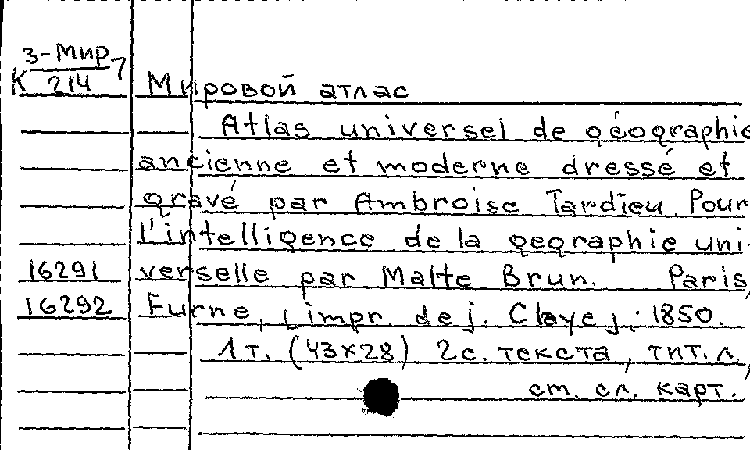 3-Мир
К 214 7
Мировой атлас
Atlas universel de géographie
ancienne et moderne dressé et
gravé par Ambroise Tardieu Pour
l'intelligence de la geographie uni-
16291 verselle par Malte Brun. Paris,
16292 Furne, [impr. de j. Claye], 1850.
1 т. (43x28) 2 с. текста, тит. л.,
см. сл. карт.